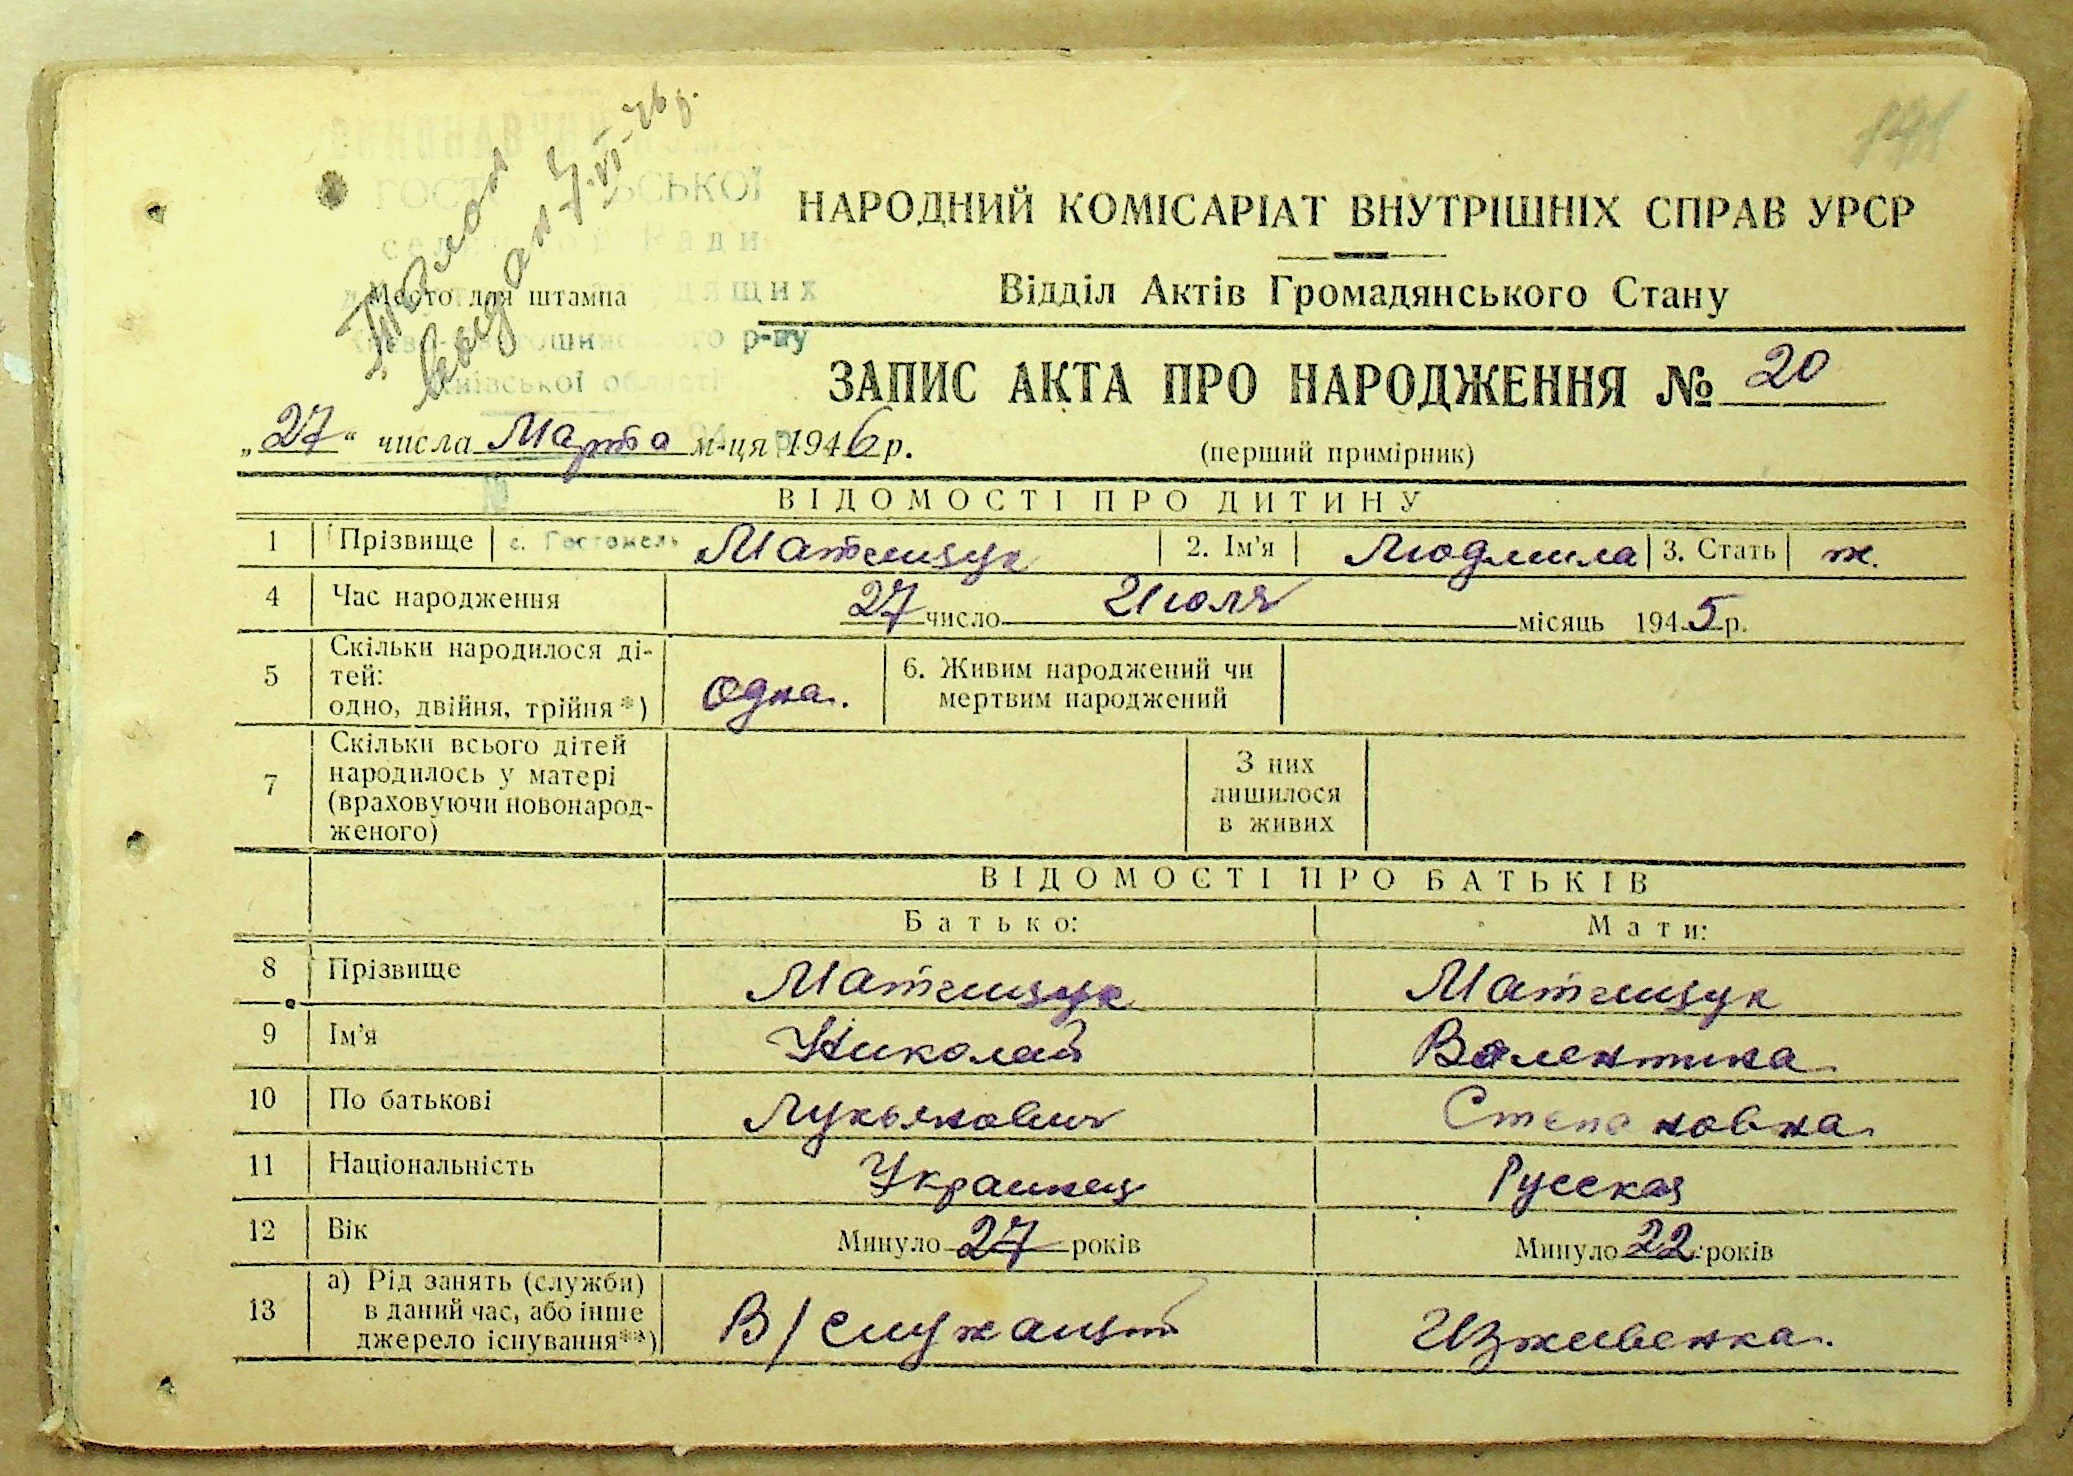 Талон
выдан 7.VI-46 г.
НАРОДНИЙ КОМІСАРІАТ ВНУТРІШНІХ СПРАВ УРСР
Відділ Актів Громадянського Стану
Место для штампа
р-ну
області
ЗАПИС АКТА ПРО НАРОДЖЕННЯ № 20
„27“ числа Марта м-ця 1946 р.
(перший примірник)
ВІДОМОСТІ ПРО ДИТИНУ
1 Прізвище с. Гостомель Матеищук 2. Ім'я Людмила 3. Стать ж.
4 Час народження 27 число Июля місяць 1945 р.
5 Скільки народилося ді-
тей:
одно, двійня, трійня *) Одна.
6. Живим народжений чи
мертвим народжений
7 Скільки всього дітей
народилось у матері
(враховуючи новонарод-
женого)
З них
лишилося
в живих
ВІДОМОСТІ ПРО БАТЬКІВ
Батько: Мати:
8 Прізвище Матеищук Матеищук
9 Ім'я Николай Валентина
10 По батькові Лукьянович Степановна
11 Національність Украинец Русская
12 Вік Минуло 27 років Минуло 22 років
13 а) Рід занять (служби)
в даний час, або інше
джерело існування **) В/служащий Иждивенка.